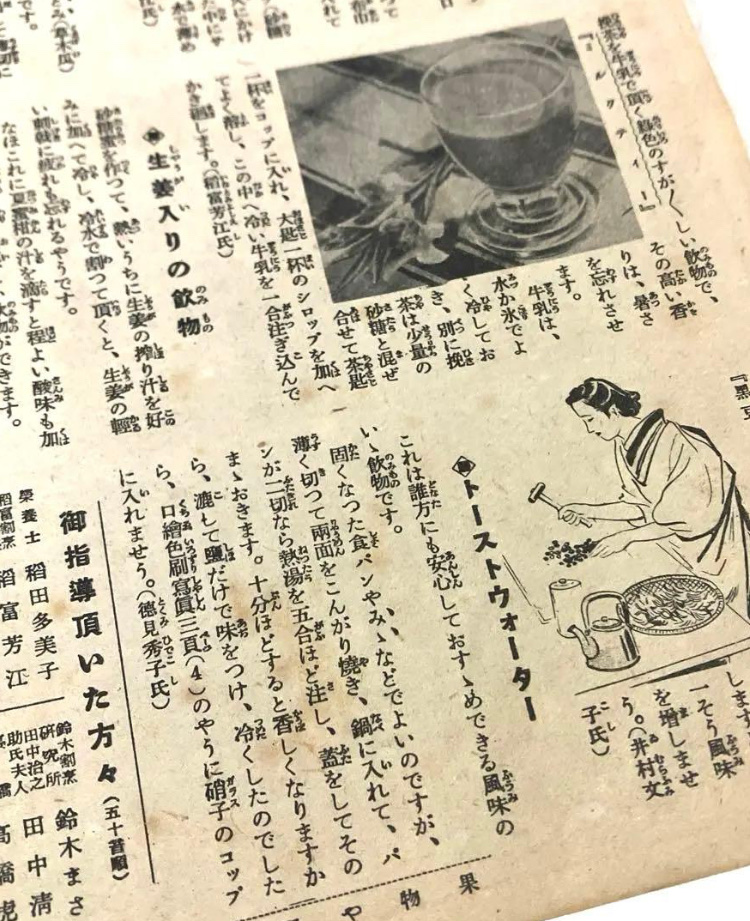 『ミルクティー』
挽茶を牛乳で頂く綠色のすが〱しい飮物で、
その高い香
りは、暑さ
を忘れさせ
ます。
牛乳は、
水か氷でよ
く冷してお
き、別に挽
茶は少量の
砂糖と混ぜ
合せて茶匙
一杯をコップに入れ、大匙一杯のシロップを加へ
てよく溶し、この中へ冷い牛乳を一合注ぎ込んで
かき廻します。(稻富芳江氏)
生姜入りの飮物
砂糖蜜を作つて、熱いうちに生姜の搾り汁を好
みに加へて冷し、冷水で割つて頂くと、生姜の輕
い刺戟に疲れも忘れるやうです。
なほこれに夏蜜柑の汁を滴すと程よい酸味も加
『黑豆
します
一そう風味
を增しませ
う。(井村文
子氏)
トーストウォーター
これは誰方にも安心しておすゝめできる風味の
いゝ飮物です。
固くなつた食パンやみゝなどでよいのですが、
薄く切つて兩面をこんがり燒き、鍋に入れて、パ
ンが二切なら熱湯を五合ほど注し、蓋をしてその
まゝおきます。十分ほどすると香しくなりますか
ら、漉して鹽だけで味をつけ、冷くしたのでした
ら、口繪色刷寫眞三頁(4)のやうに硝子のコップ
に入れませう。(德見秀子氏)
御指導頂いた方々(五十音順)
榮養士 稻田多美子
稻富割烹 稻富芳江
鈴木割烹
研究所 鈴木まさ
田中治之
助氏夫人 田中淸
高橋
果物や